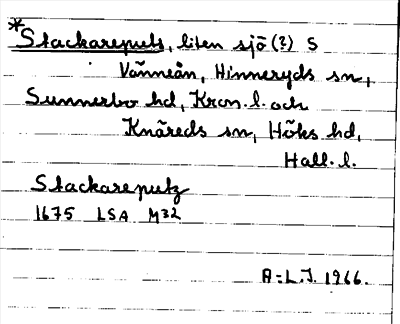 *Stackareputs, liten sjö (?) S
Vänneån, Hinneryds sn,
Sunnerbo hd, Kron. l. och
Knäreds sn, Höks hd,
Hall. l.
Stackareputz
1675 LSA M32
A-L.J. 1966.